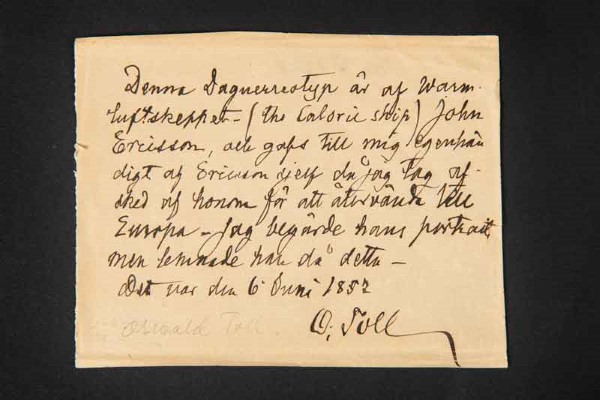 Denna Daguerreotyp är af Warm-
luftskeppet – (the Caloric ship) John
Ericsson, och gafs till mig egenhän
digt af Ericsson sjelf då jag tog af-
sked af honom för att återvända till
Europa – Jag begärde hans portrait
men lemnade han då detta –
Det var den 6 Juni 1852
O. Toll
Oswald Toll